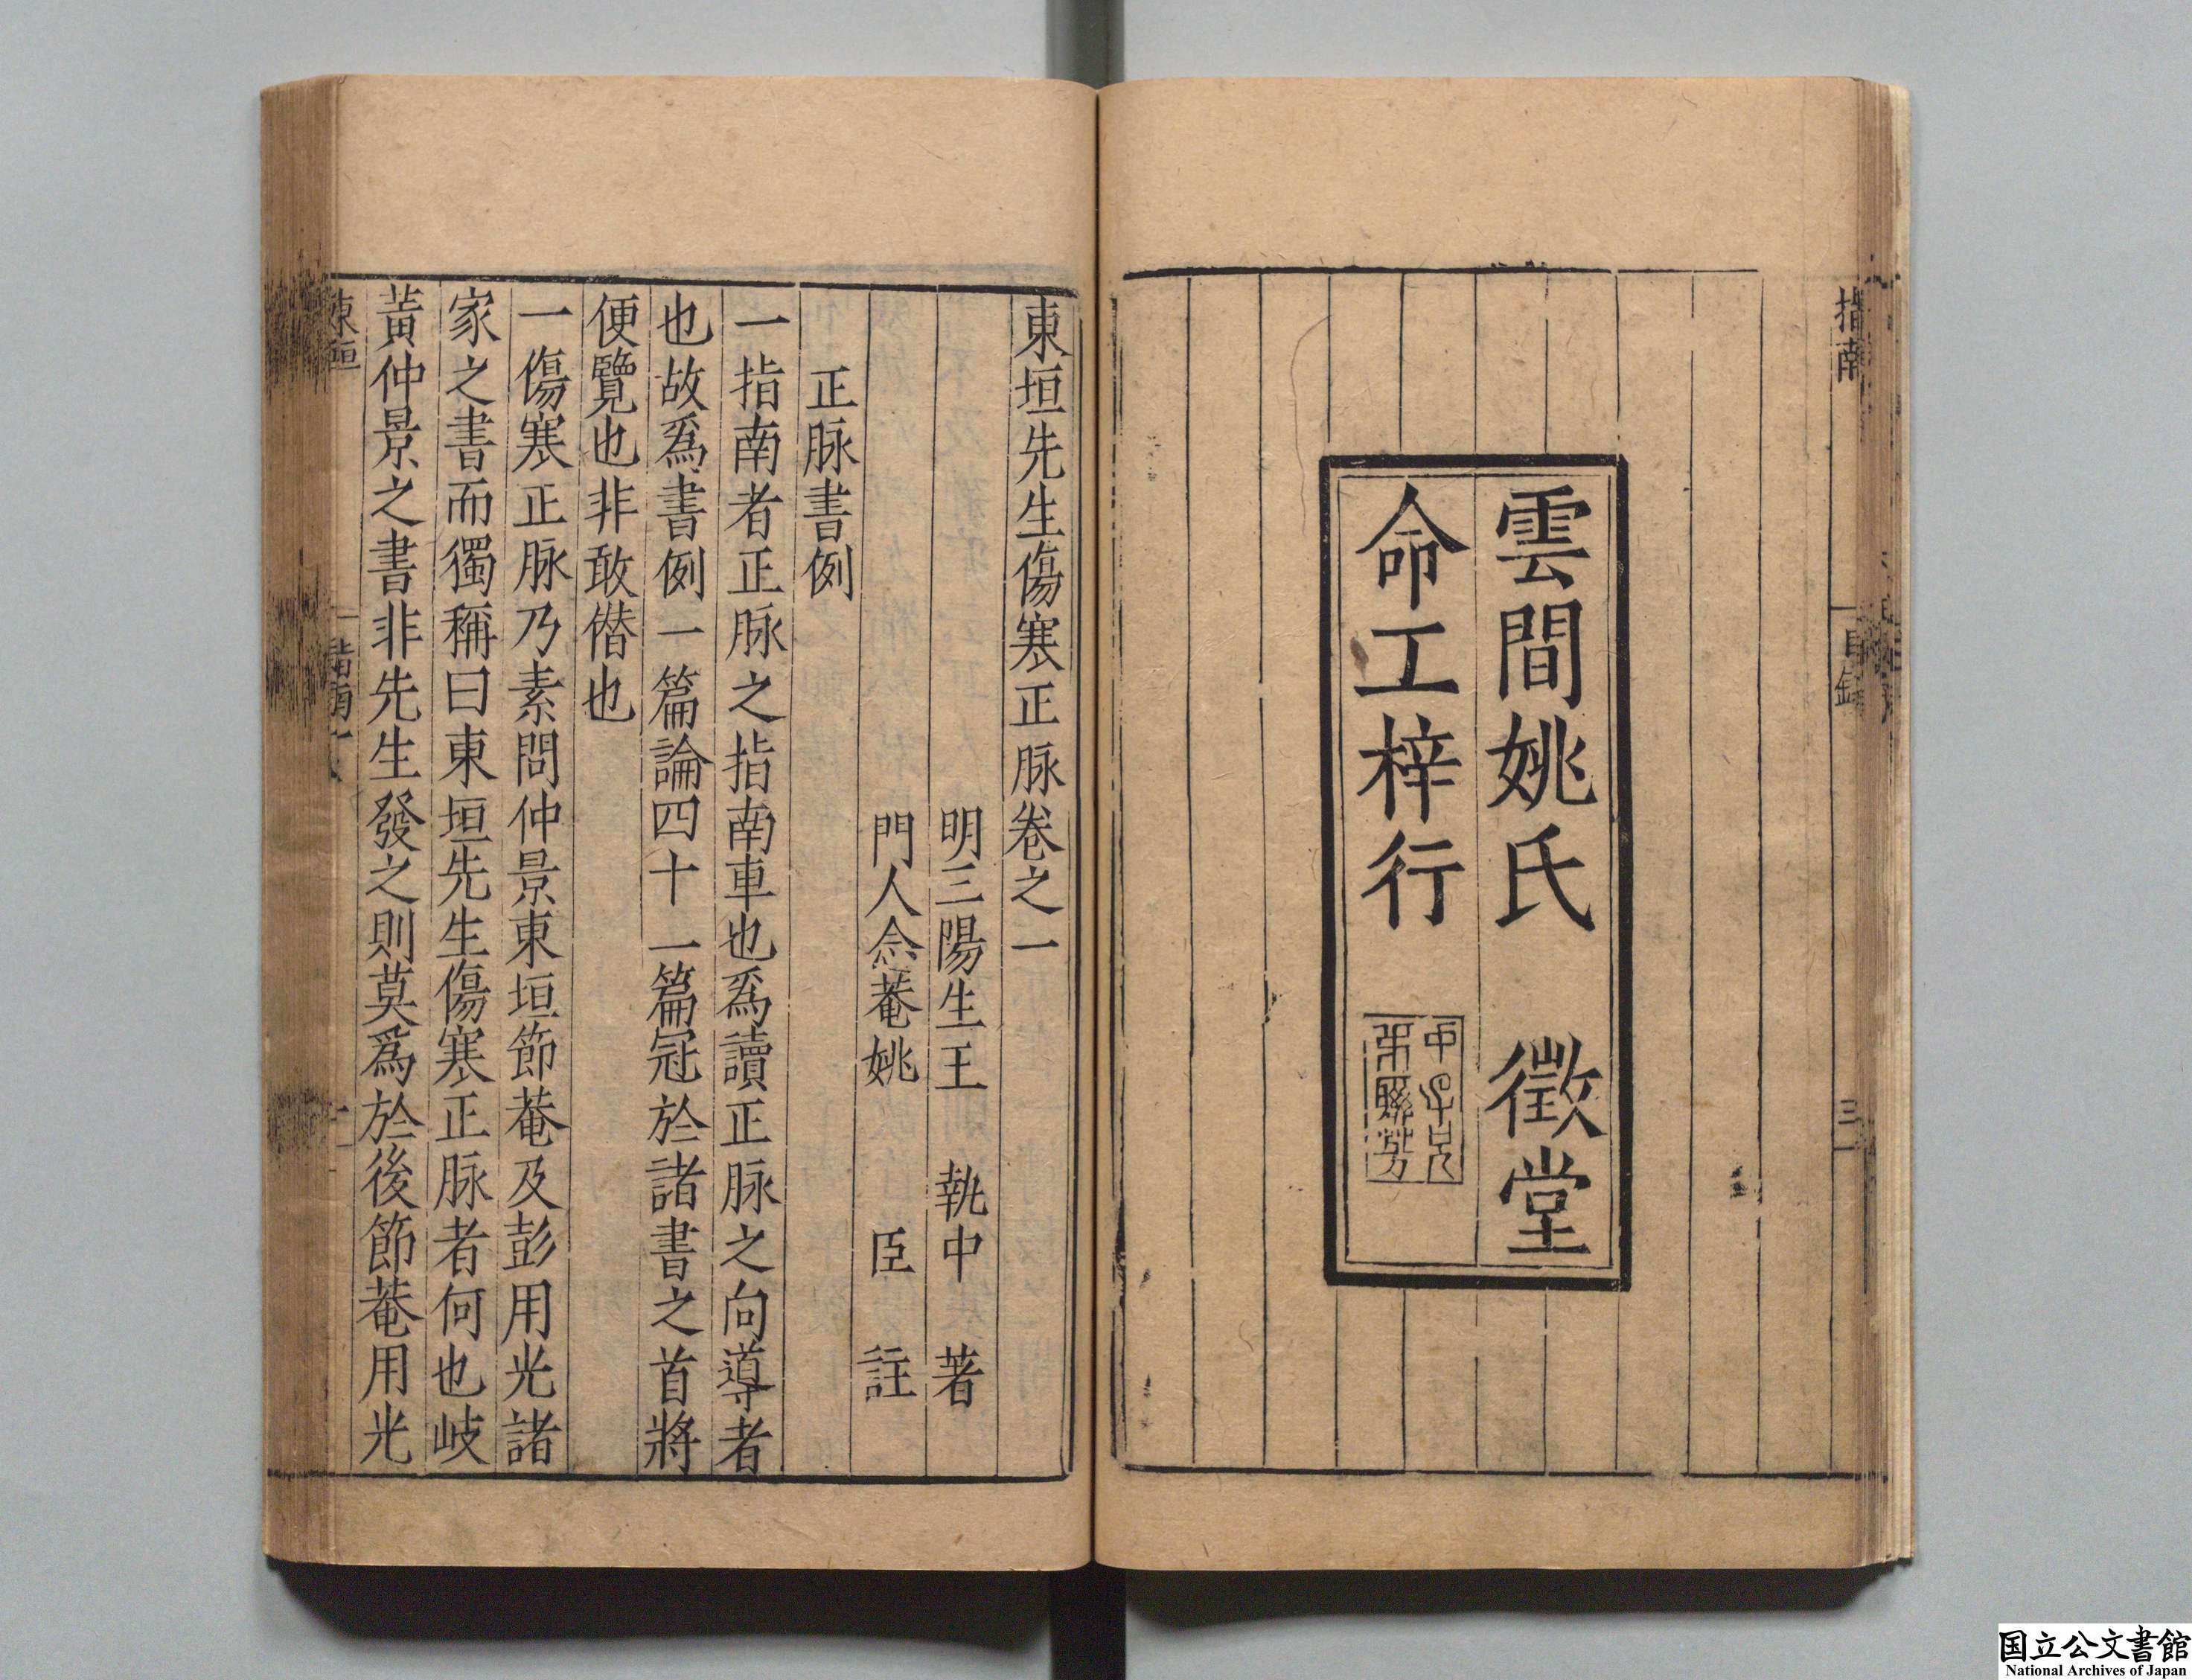 指南
目錄
三
雲間姚氏 徵堂
命工梓行
東垣先生傷寒正脉卷之一
明三陽生王 執中 著
門人㤅菴姚 臣 註
正脉書例
一指南者正脉之指南車也爲讀正脉之向導者
也故爲書例一篇論四十一篇冠於諸書之首將
便覽也非敢僣也
一傷寒正脉乃素問仲景東垣節菴及彭用光諸
家之書而獨稱曰東垣先生傷寒正脉者何也岐
黃仲景之書非先生發之則莫爲於後節菴用光
東垣
国立公文書館
National Archives of Japan